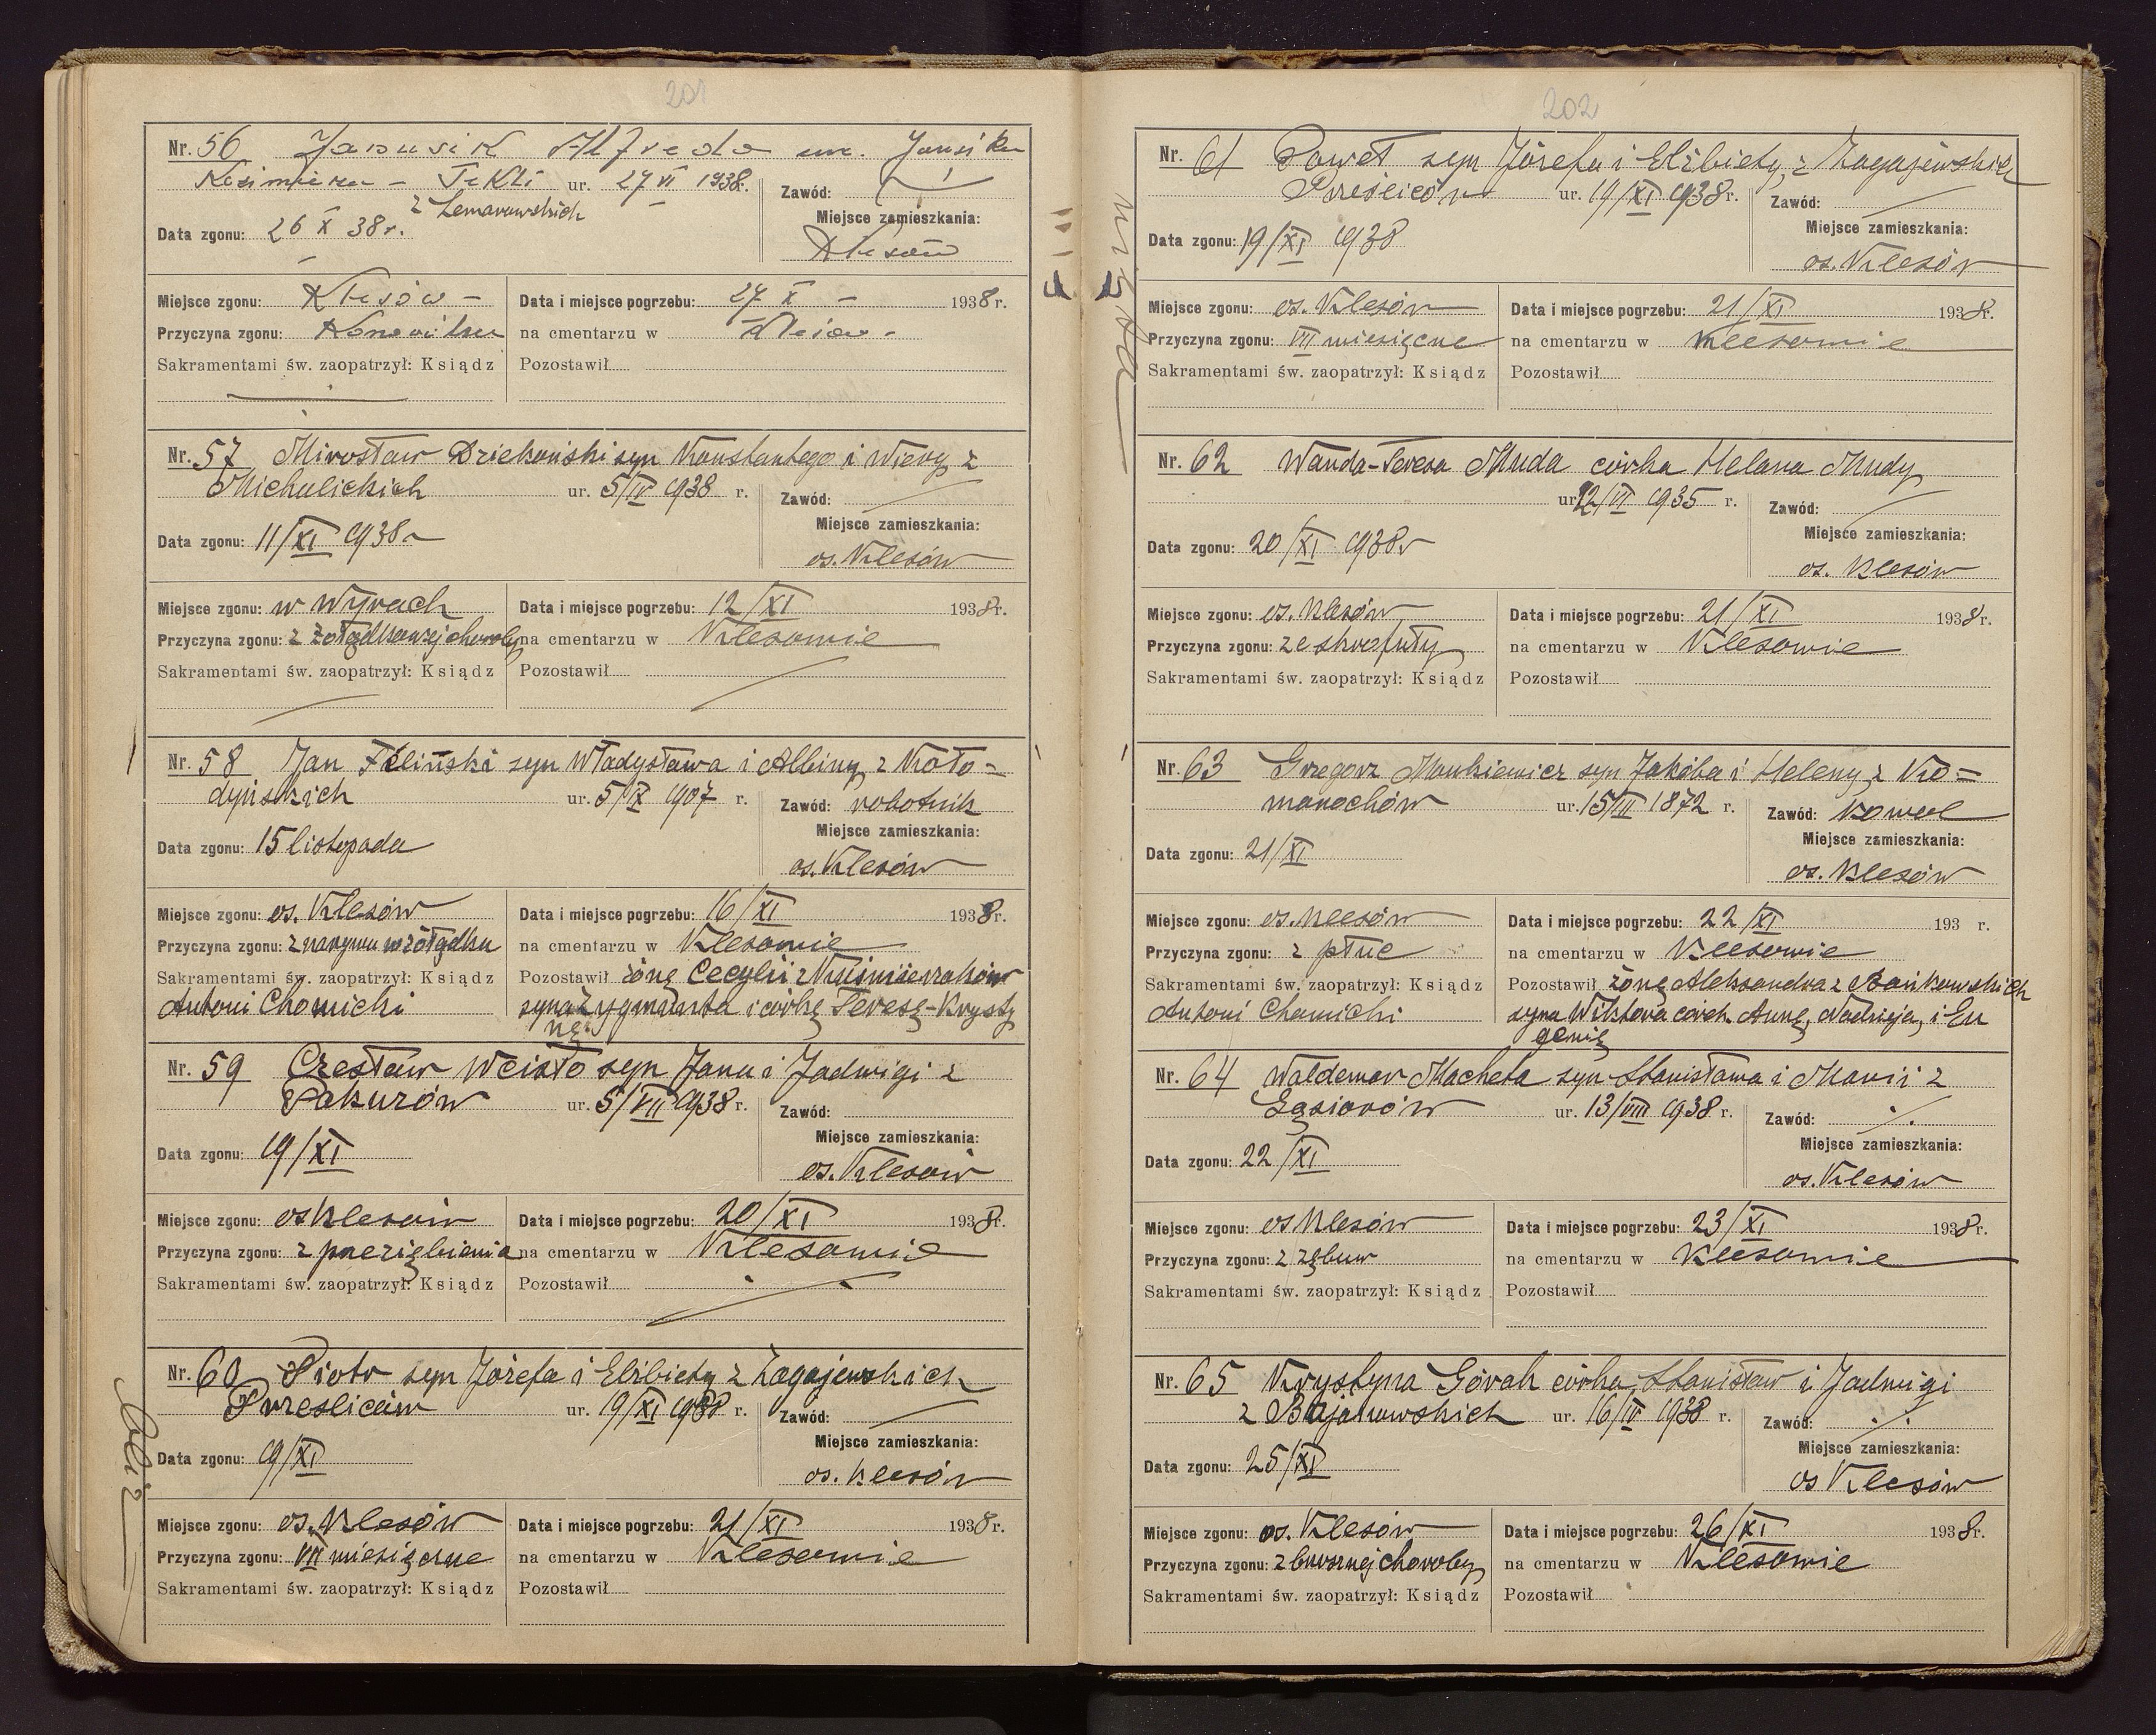 201
Nr. 56 Janusik Alfreda
Kazimierza – Tekli ur. 27 VI 1938 r. Zawód:
z Lemanowskich
Miejsce zamieszkania:
Data zgonu: 26 X 38 r.
Klesów
Miejsce zgonu: Klesów – Data i miejsce pogrzebu: 27 X – 1938 r.
Przyczyna zgonu: na cmentarzu w Klesów –
Sakramentami św. zaopatrzył: Ksiądz Pozostawił
Nr. 57 Mirosław Dziekański syn Konstantego i Wiery z
Michalickich ur. 5/IV 1938 r. Zawód:
Miejsce zamieszkania:
Data zgonu: 11/XI 1938 r
os. Klesów
Miejsce zgonu: w Wyrach Data i miejsce pogrzebu: 12/XI 1938 r.
Przyczyna zgonu: z żołądkowej choroby na cmentarzu w Klesowie
Sakramentami św. zaopatrzył: Ksiądz Pozostawił
Nr. 58 Jan Feliński syn Władysława i Albiny z Koło=
dyńskich ur. 5/IX 1907 r. Zawód: robotnik
Miejsce zamieszkania:
Data zgonu: 15 listopada
os. Klesów
Miejsce zgonu: os. Klesów Data i miejsce pogrzebu: 16/XI 1938 r.
Przyczyna zgonu: z narywu w żołądku na cmentarzu w Klesowie
Sakramentami św. zaopatrzył: Ksiądz Pozostawił żonę Cecylii z Kuśmierzaków
Antoni Chomicki syna Zygmunta i córkę Teresę-Krysty
nę
Nr. 59 Czesław Wcisło syn Jana i Jadwigi z
Pakurów ur. 5/VII 1938 r. Zawód:
Miejsce zamieszkania:
Data zgonu: 19/XI
os. Klesów
Miejsce zgonu: os Klesów Data i miejsce pogrzebu: 20/XI 1938 r.
Przyczyna zgonu: z przeziębienia na cmentarzu w Klesowie
Sakramentami św. zaopatrzył: Ksiądz Pozostawił
Nr. 60 Piotr syn Józefa i Elżbiety z Zagajewskich
Prześliców ur. 19/XI 1938 r. Zawód:
Miejsce zamieszkania:
Data zgonu: 19/XI
os. Klesów
Miejsce zgonu: os. Klesów Data i miejsce pogrzebu: 21/XI 1938 r.
Przyczyna zgonu: VII miesięczne na cmentarzu w Klesowie
Sakramentami św. zaopatrzył: Ksiądz Pozostawił
202
Nr. 61 Paweł syn Józefa i Elżbiety z Zagajewskich
Prześliców ur. 19/XI 1938 r. Zawód:
Miejsce zamieszkania:
Data zgonu: 19/XI 1938
os. Klesów
Miejsce zgonu: os. Klesów Data i miejsce pogrzebu: 21/XI 1938 r.
Przyczyna zgonu: VII miesięczne na cmentarzu w Klesowie
Sakramentami św. zaopatrzył: Ksiądz Pozostawił
Nr. 62 Wanda-Teresa Muda córka Helana Mudy
ur. 12/VI 1935 r. Zawód:
Miejsce zamieszkania:
Data zgonu: 20/XI 1938 r
os. Klesów
Miejsce zgonu: os. Klesów Data i miejsce pogrzebu: 21/XI 1938 r.
Przyczyna zgonu: ze skrofuły na cmentarzu w Klesowie
Sakramentami św. zaopatrzył: Ksiądz Pozostawił
Nr. 63 Grzegorz Mankiewicz syn Jakóba i Heleny z Ko=
marochów ur. 15/III 1872 r. Zawód: Kowal
Miejsce zamieszkania:
Data zgonu: 21/XI
os. Klesów
Miejsce zgonu: os. Klesów Data i miejsce pogrzebu: 22/XI 193 r.
Przyczyna zgonu: z płuc na cmentarzu w Klesowie
Sakramentami św. zaopatrzył: Ksiądz Pozostawił żonę Aleksandra z Bańkowskich
Antoni Chomicki syna Wiktora córck. Annę, Nadzieja, i Eu
genię
Nr. 64 Waldemar Macheta syn Stanisława i Marii z
Gąsiorów ur. 13/VIII 1938 r. Zawód:
Miejsce zamieszkania:
Data zgonu: 22/XI
os. Klesów
Miejsce zgonu: os Klesów Data i miejsce pogrzebu: 23/XI 1938 r.
Przyczyna zgonu: z zębuw na cmentarzu w Klesowie
Sakramentami św. zaopatrzył: Ksiądz Pozostawił
Nr. 65 Krystyna Górak córka Stanisław i Jadwigi
z Bajanowskich ur. 16/IV 1938 r. Zawód:
Miejsce zamieszkania:
Data zgonu: 25/XI
os Klesów
Miejsce zgonu: os. Klesów Data i miejsce pogrzebu: 26/XI 1938 r.
Przyczyna zgonu: z brusznej choroby na cmentarzu w Klesowie
Sakramentami św. zaopatrzył: Ksiądz Pozostawił